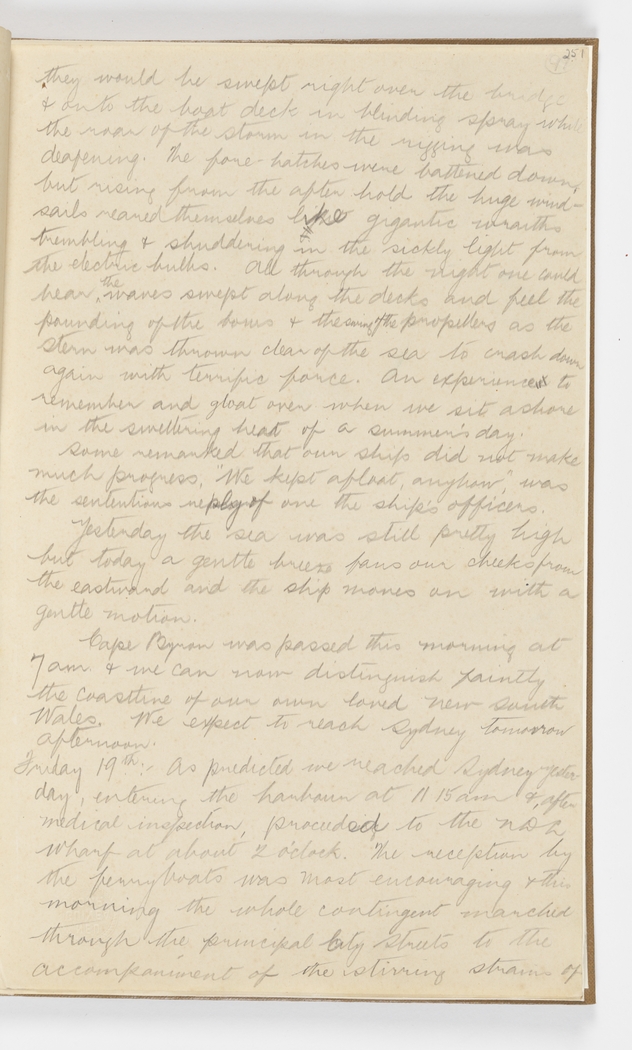 251
they would be swept right over the bridge
& onto the boat deck in blinding spray while
the roar of the storm in the rigging was
deafening. The fore-hatches were battened down,
but rising from the after hold the huge wind-
sails reared themselves like gigantic wraiths
trembling & shuddering in the sickly light from
the electric bulbs. All through the night one could
hear, the waves swept along the decks and feel the
pounding of the bows & the swing of the propellers as the
stern was thrown clear of the sea to crash down
again with terrific force. An experience to
remember and gloat over when we sit ashore
in the sweltering heat of a summer's day.
Some remarked that our ship did not make
much progress, "We kept afloat, anyhow", was
the sententious reply of one the ship's officers.
Yesterday the sea was still pretty high
but today a gentle breeze fans our cheeks from
the eastward and the ship moves on with a
gentle motion.
Cape Byron was passed this morning at
7 am & we can now distinguish faintly
the coastline of our own loved New South
Wales. We expect to reach Sydney tomorrow
afternoon.
Friday 19th:- As predicted we reached Sydney yester-
day, entering the harbour at 11 15 am &, after
medical inspection, proceeded to the NDL
wharf at about 2 o'clock. The reception by
the ferryboats was most encouraging & this
morning the whole contingent marched
through the principal City streets to the
accompaniment of the stirring strains of